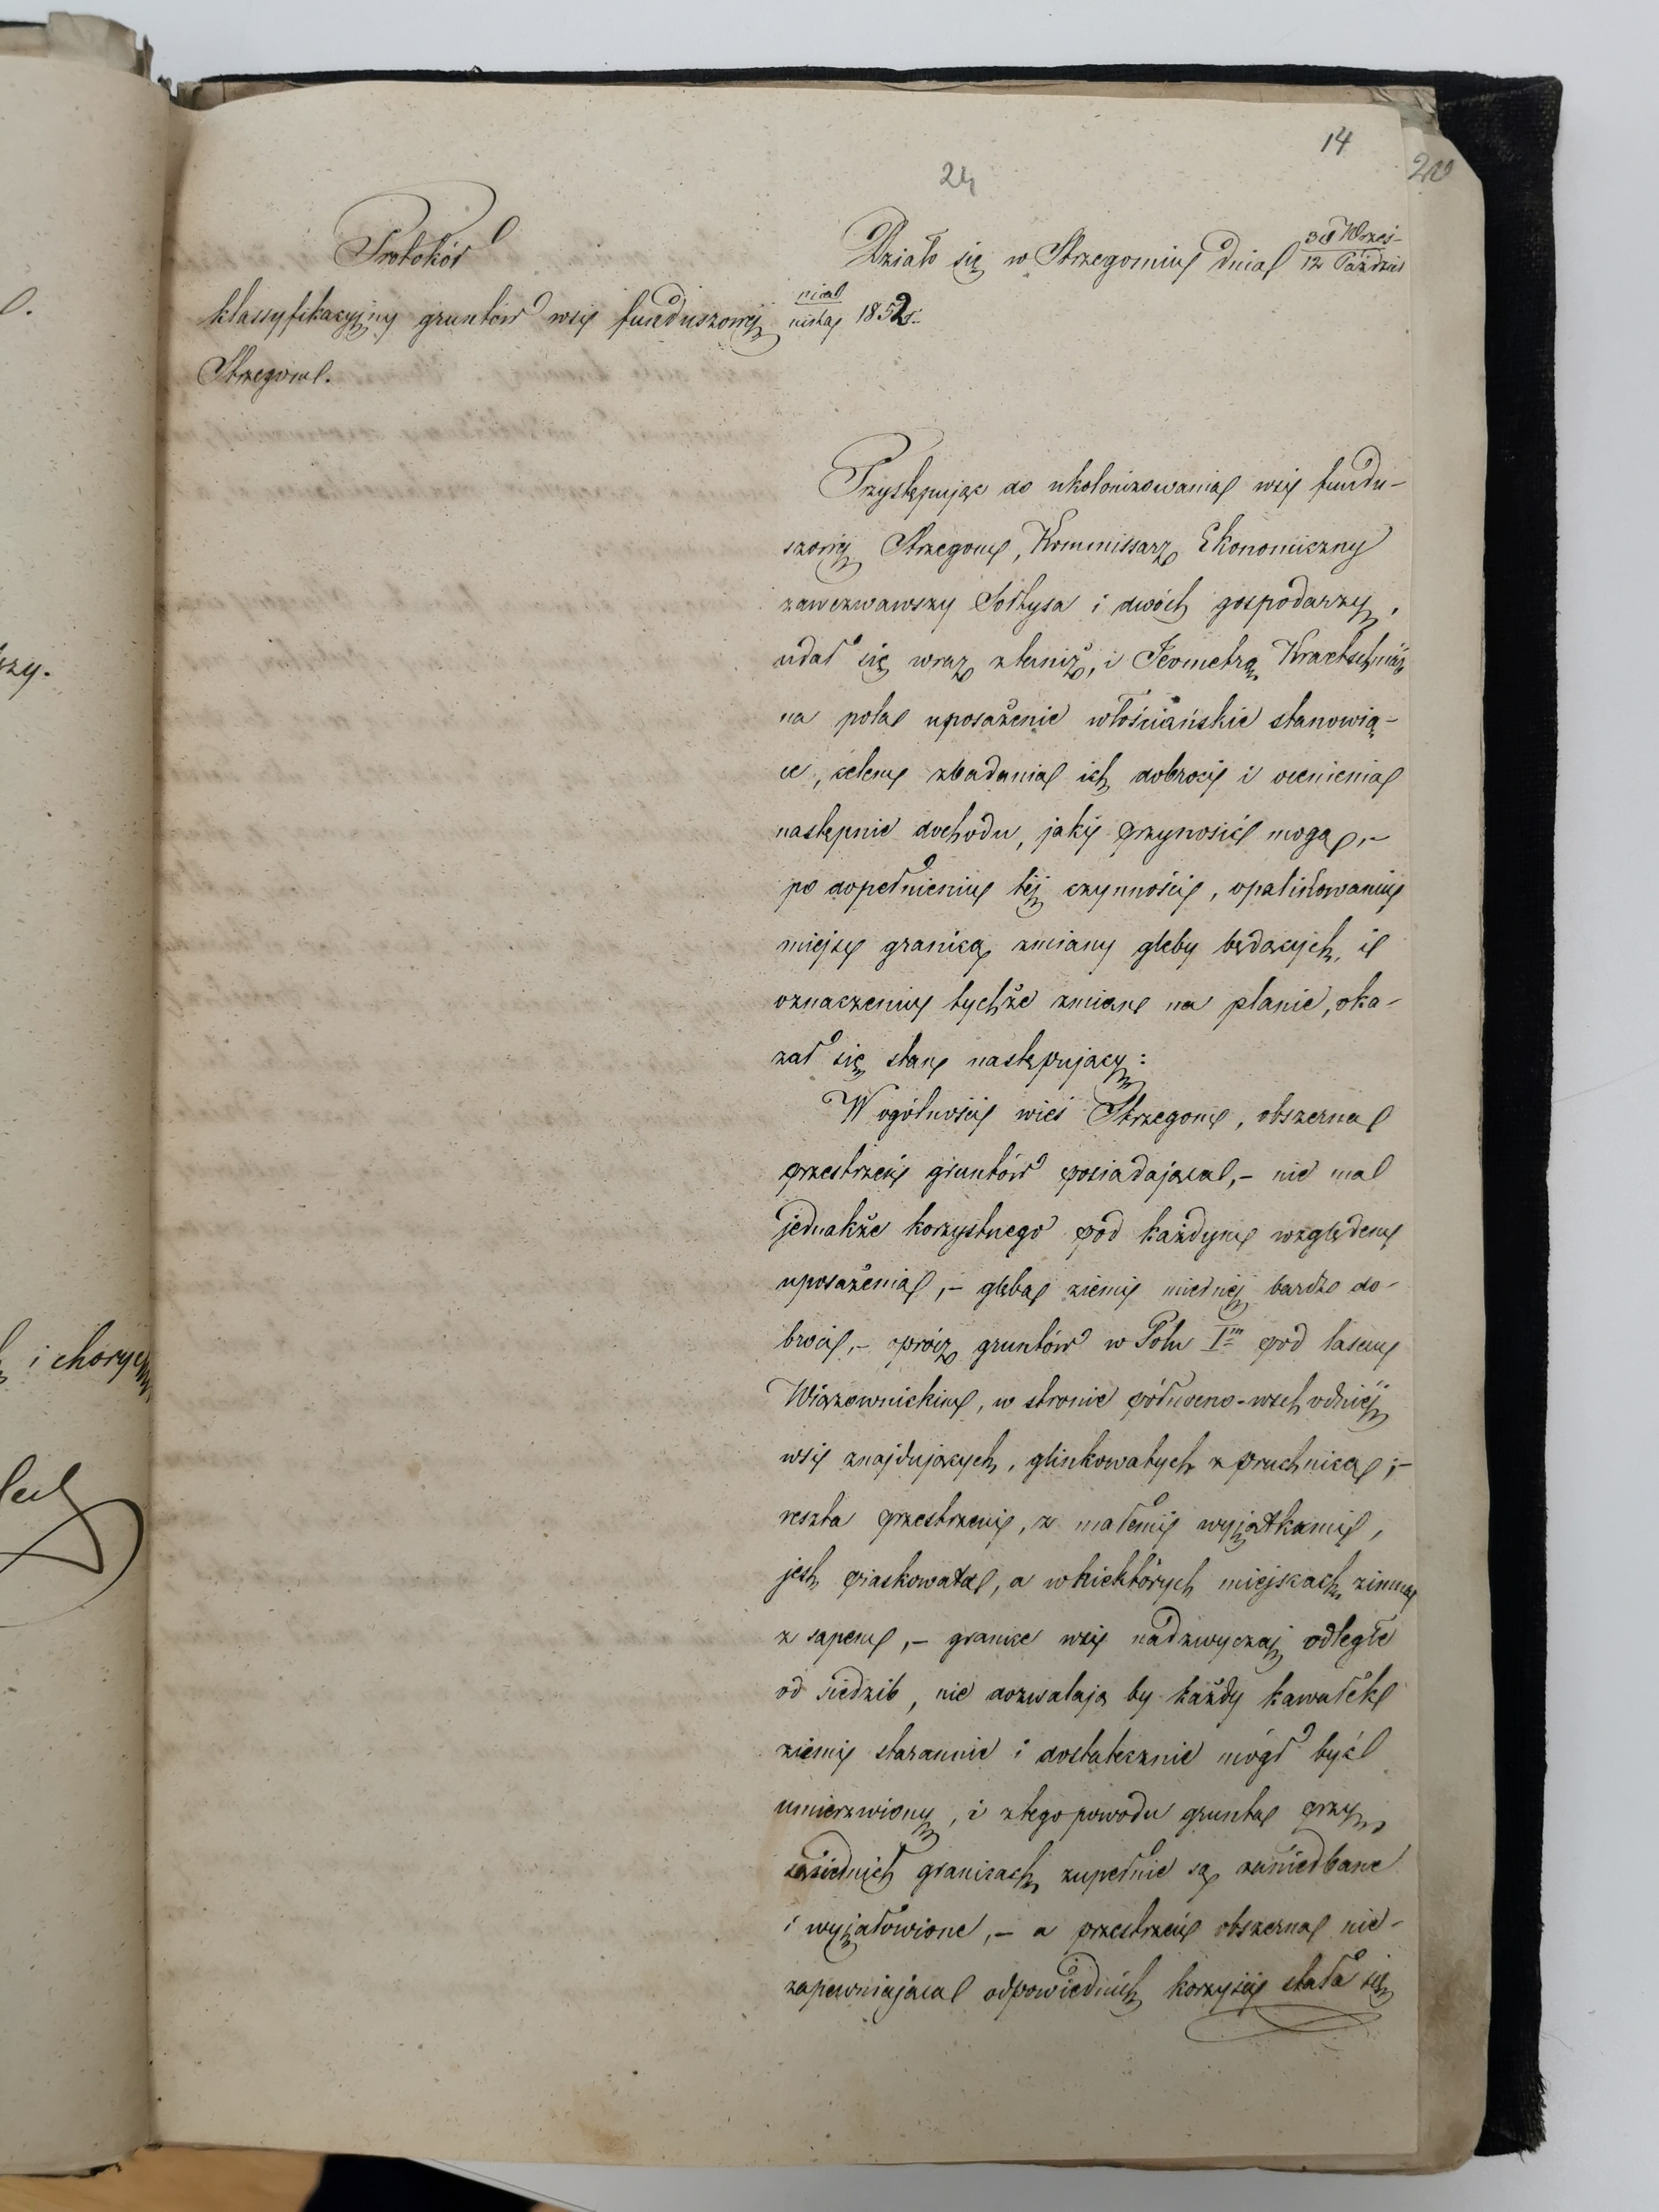 14
24
20
Protokół
klassyfikacyjny gruntów wsi funduszowej
Strzegom.
Działo się w Strzegomiu dnia 30 Wrześ-
12 Paździer
nia
nika 1852 r.
Przystępując do ukolonizowania wsi fundu-
szowej Strzegom, Kommissarz Ekonomiczny
zawezwawszy Sołtysa i dwóch gospodarzy,
udał się wraz z temiż, i Jeometrą
na pola uposażenie włościańskie stanowią-
ce, celem zbadania ich dobroci i ocenienia
następnie dochodu, jaki przynosić mogą,-
po dopełnieniu tej czynności, opalikowaniu
miejsc granicą zmiany gleby będących, i
oznaczeniu tychże zmian na planie, oka-
zał się stan następujący:
W ogólności wieś Strzegom, obszerna
przestrzeń gruntów posiadająca,- nie ma
jednakże korzystnego pod każdym względem
uposażenia,- gleba ziemi miernej bardzo do-
broci,- oprócz gruntów w Polu I<sup>m</sup> pod lasem
Wiązownickim, w stronie północno-wschodniej
wsi znajdujących, glinkowatych z pruchnicą;-
reszta przestrzeni, z małemi wyjątkami,
jest piaskowata, a w niektórych miejscach zimna
z sapem,- granice wsi nadzwyczaj odległe
od siedzib, nie dozwalają by każdy kawałek
ziemi starannie i dostatecznie mógł być
umierzwiony, i z tego powodu grunta przy
sąsiednich granicach zupełnie są zaniedbane
i wyjałowione,- a przestrzeń obszerna nie-
zapewniająca odpowiednich korzyści stała się
l.
rzy.
i chorych